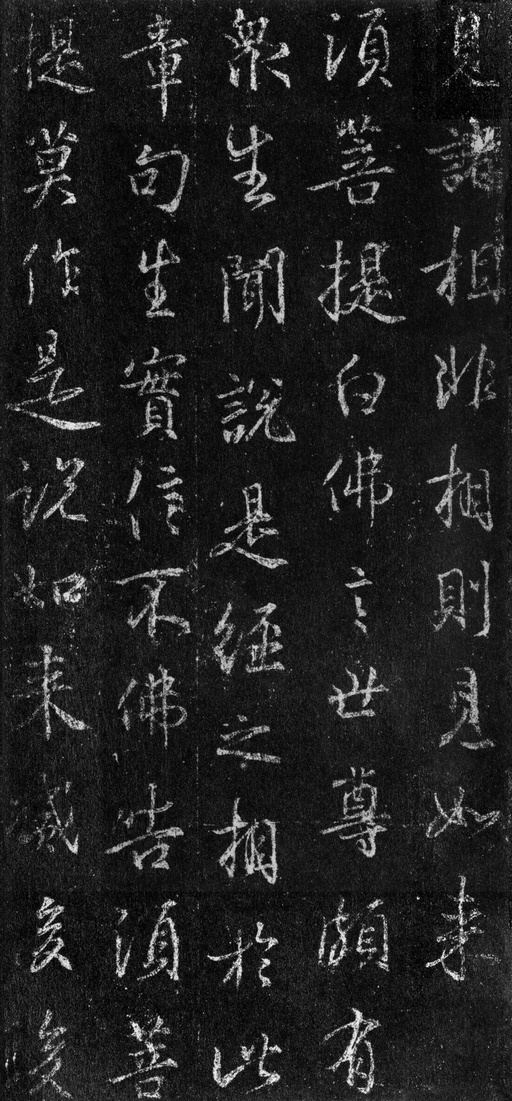 見諸相非相則見如来
須菩提白佛言世尊頗有
衆生聞說是經之相於此
章句生實信不佛告須菩
提莫作是説如来滅後後